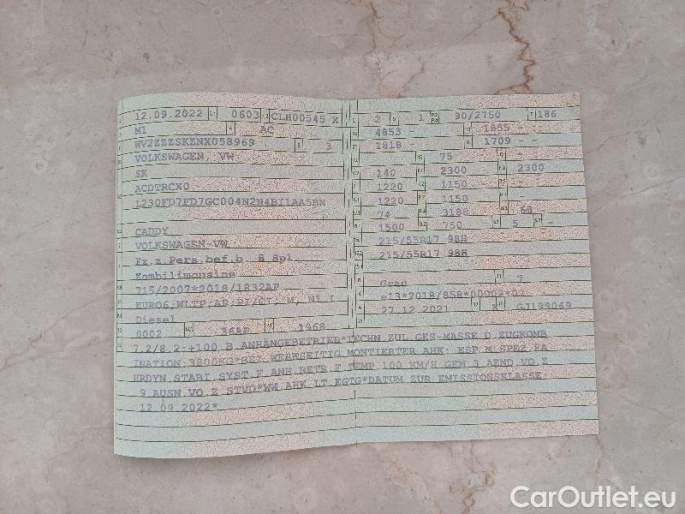 12.09.2022 0603 CLH00545 X
M1 AC
WV2ZZZSKZNX058969 3
VOLKSWAGEN, VW
SK
ACDTRCX0
CADDY
VOLKSWAGEN-VW
Fz.z.Pers.bef.b. 8 Spl
Kombilimousine
715/2007*2018/1832AP
Diesel
0002 36AP 1968
2 1 90/2750 186
4853 - 1855 -
1818 - 1709 -
75
140 2300 2300
1220 1150 -
1220 1150 -
74 3188 68
1500 750 5 -
215/55R17 98H
215/55R17 98H
Grau 7
27.12.2021 GJ199069
7.2/8.2:+100 B.ANHÄNGEBETRIEB*TECHN.ZUL.GES-MASSE D.ZUGKOMB
INATION 3800KG*BEZ.WERKSEITIG MONTIERTER AHK: ESP M.SPEZ.FA
HRDYN.STABI SYST.F.ANH.BETR.F.TEMP.100 KM/H GEM.3.AEND.VO.Z
.9.AUSN.VO.Z.STVO*WW.AHK LT.EGTG*DATUM ZUR EMISSIONSKLASSE:
12.09.2022*
CarOutlet.eu